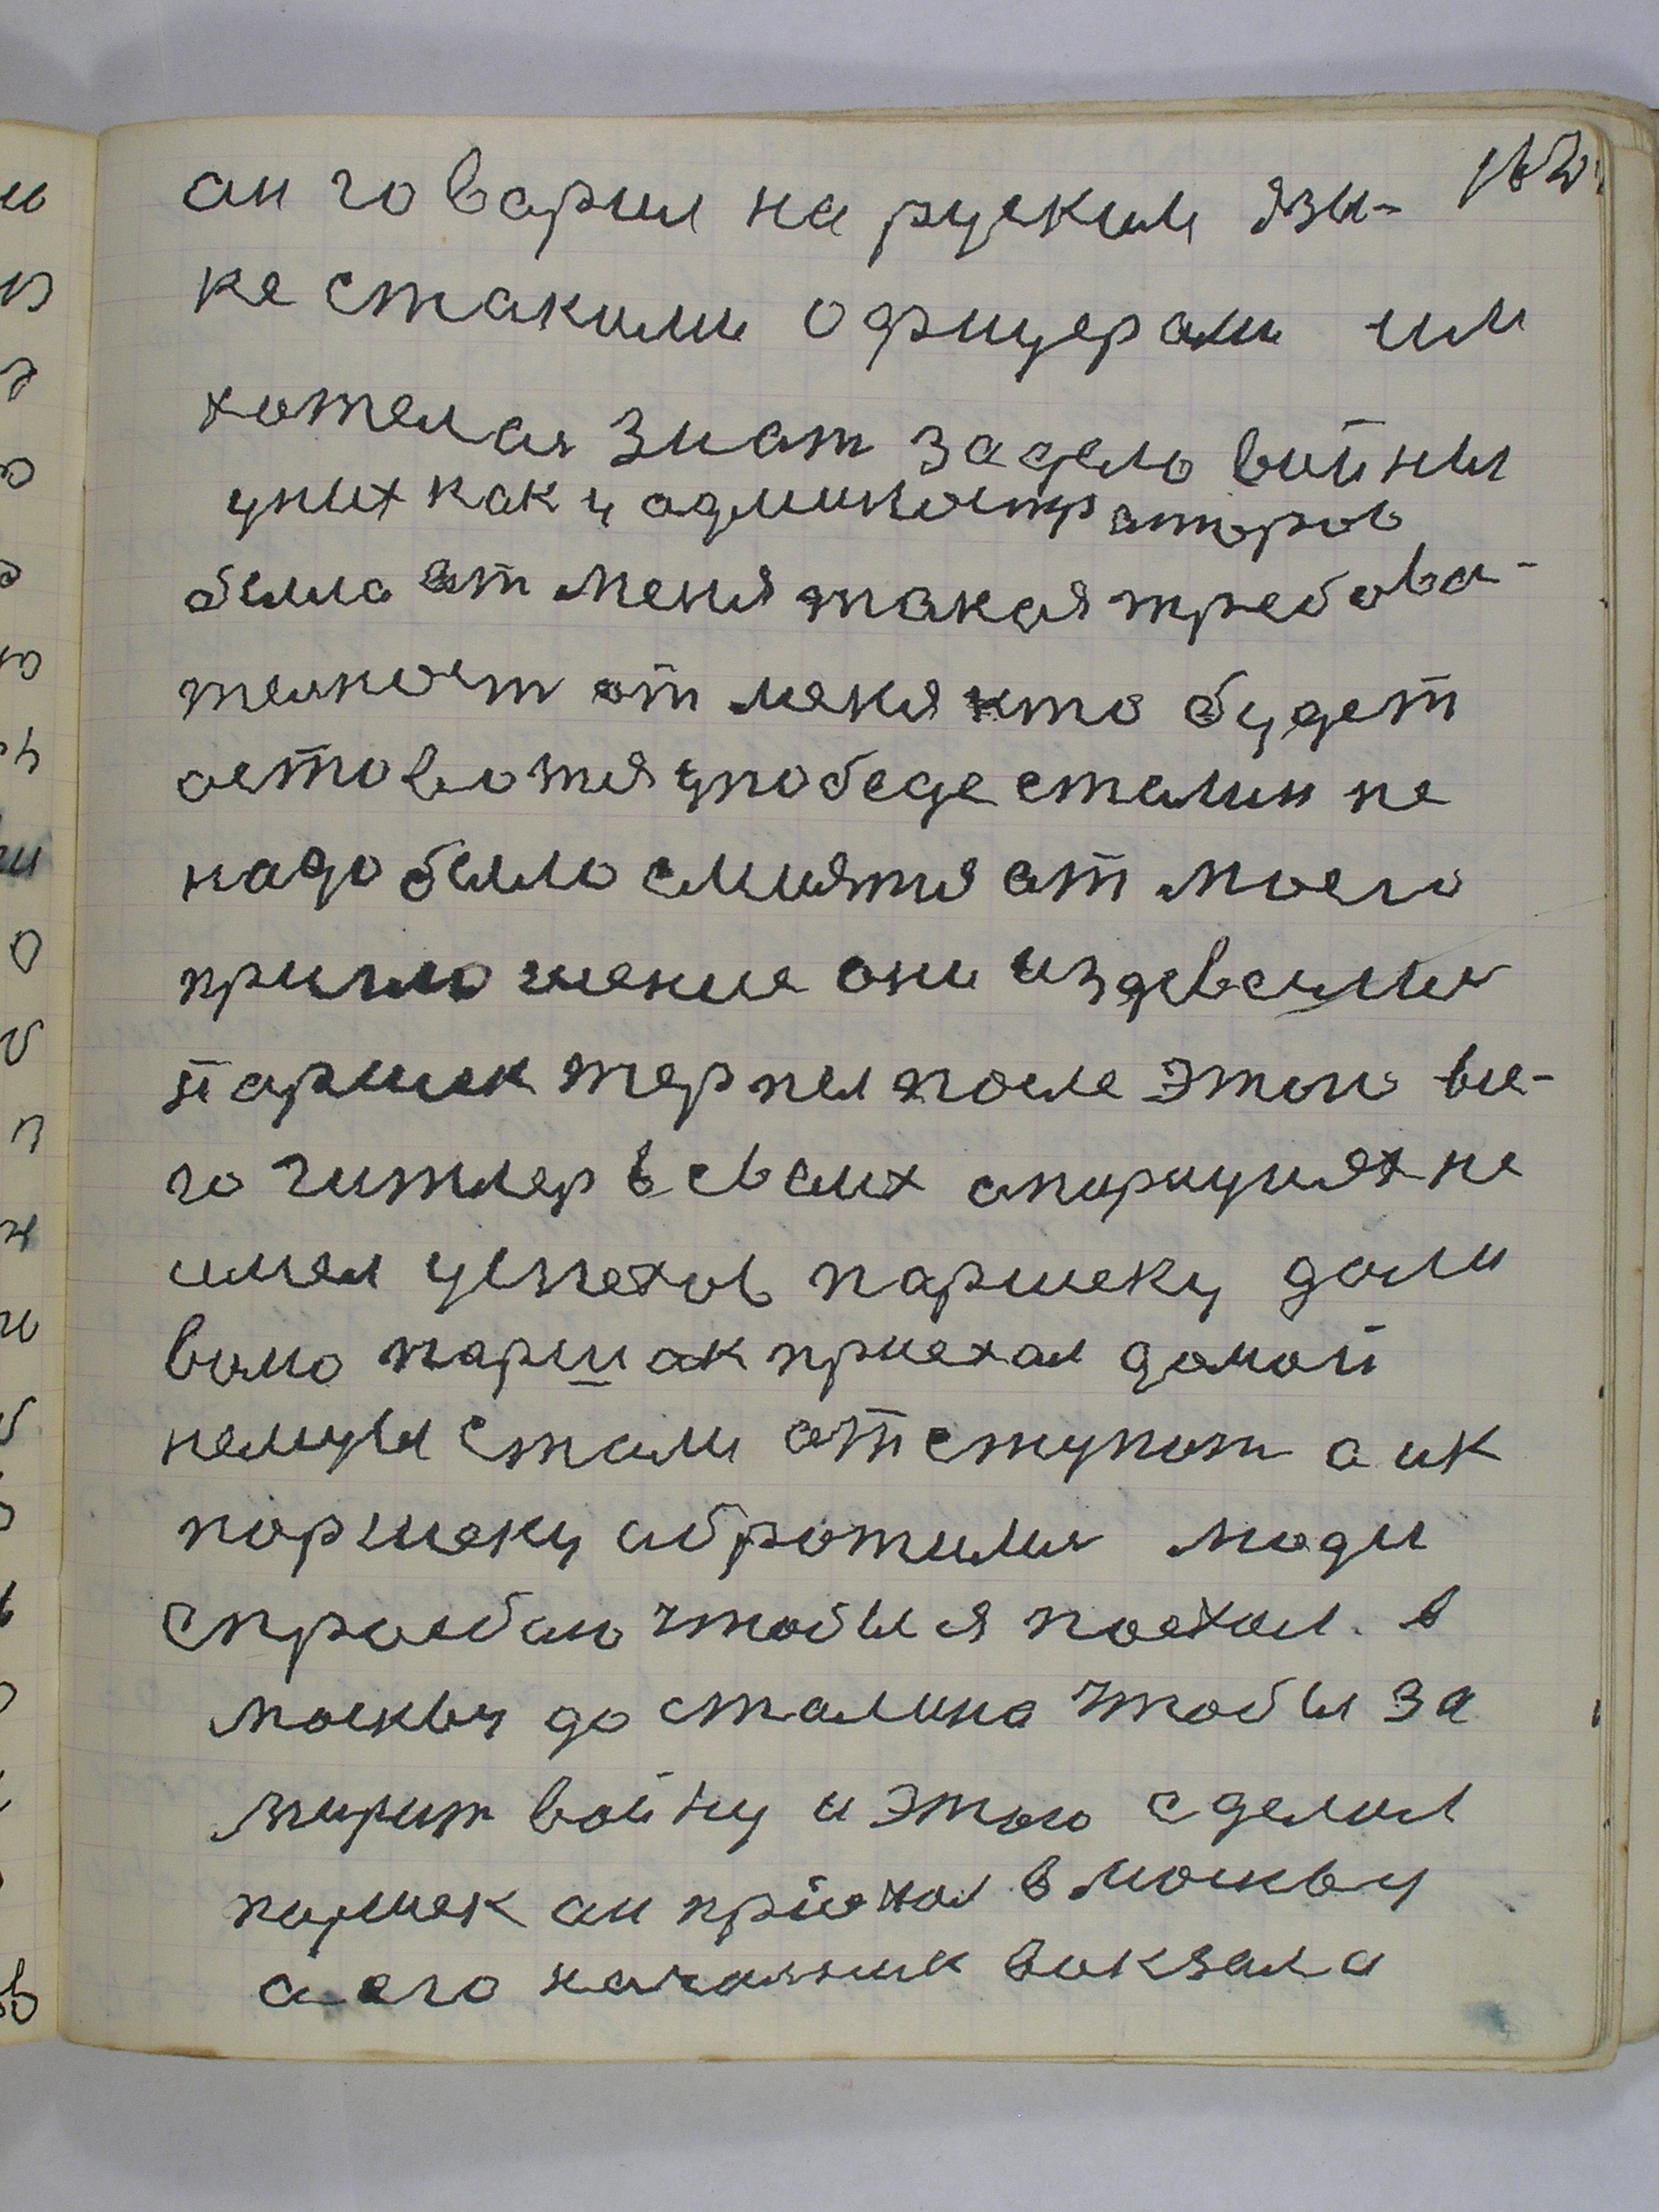 162
ан говарил на руским язы-
ке стакими офицерами им
хотелая знат задело войны
уних как у админостраторов
была ат меня такая требова-
телност от меня кто будет
астовотся упобеде сталин не
надо было смиятся ат моего
приглошение они издевалис
паршек терпел после этого вс-
го гитлер в сваих апирациях не
имел успехов паршеку дали
волю паршак приехал домой
немцы стали отступат а ик
поршеку абротилис люди
спрозбаю чтобы я поехал. в
москву до сталина чтобы за
мирит войну и этого сделал
паршек ан приехал в москву
а его начялник вокзала